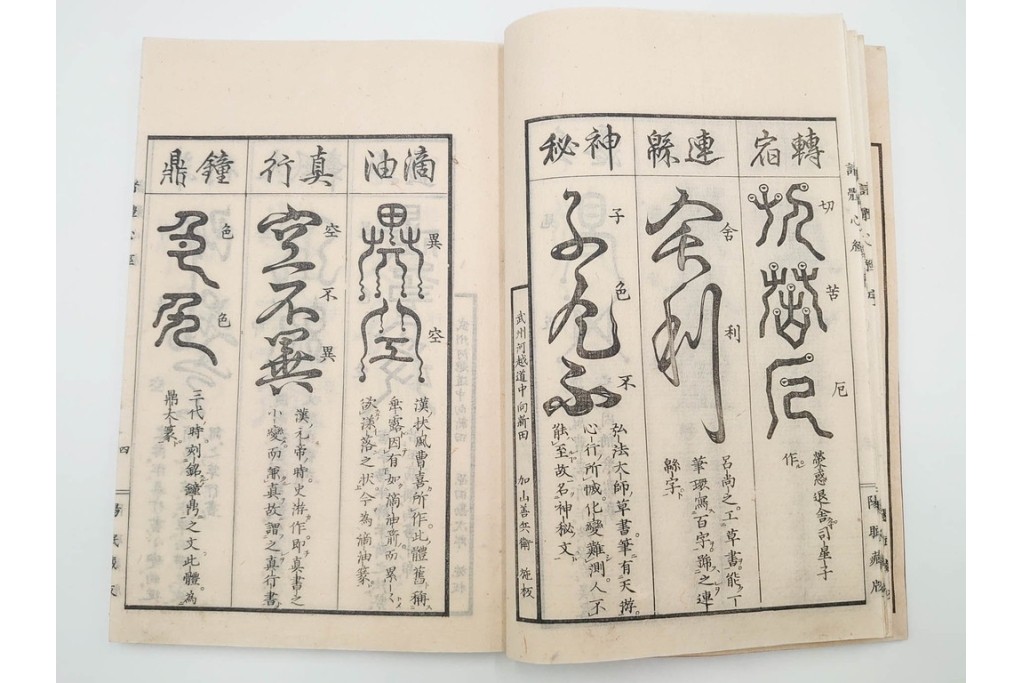 轉宿
切
苦
厄
熒惑退舍司星子
作
連緜
舍
利
呂尚之工草書能一
筆環寫百字號之連
緜字
神秘
子
色
不
弘法大師草書筆有天
心行所滅化變難測人不
能至故名神秘文
武州河越道中向新田
加山善兵衞 施板
滴油
異
空
漢扶風曹喜所作此體舊稱
垂露因有如滴油箭而累
欲落之狀今為滴油篆
真行
空
不
異
漢元帝時史游作即真書之
小變而兼真故謂之真行書
鐘鼎
色
色
三代時刻銘鐘鼎之文此體為
鼎木篆
四